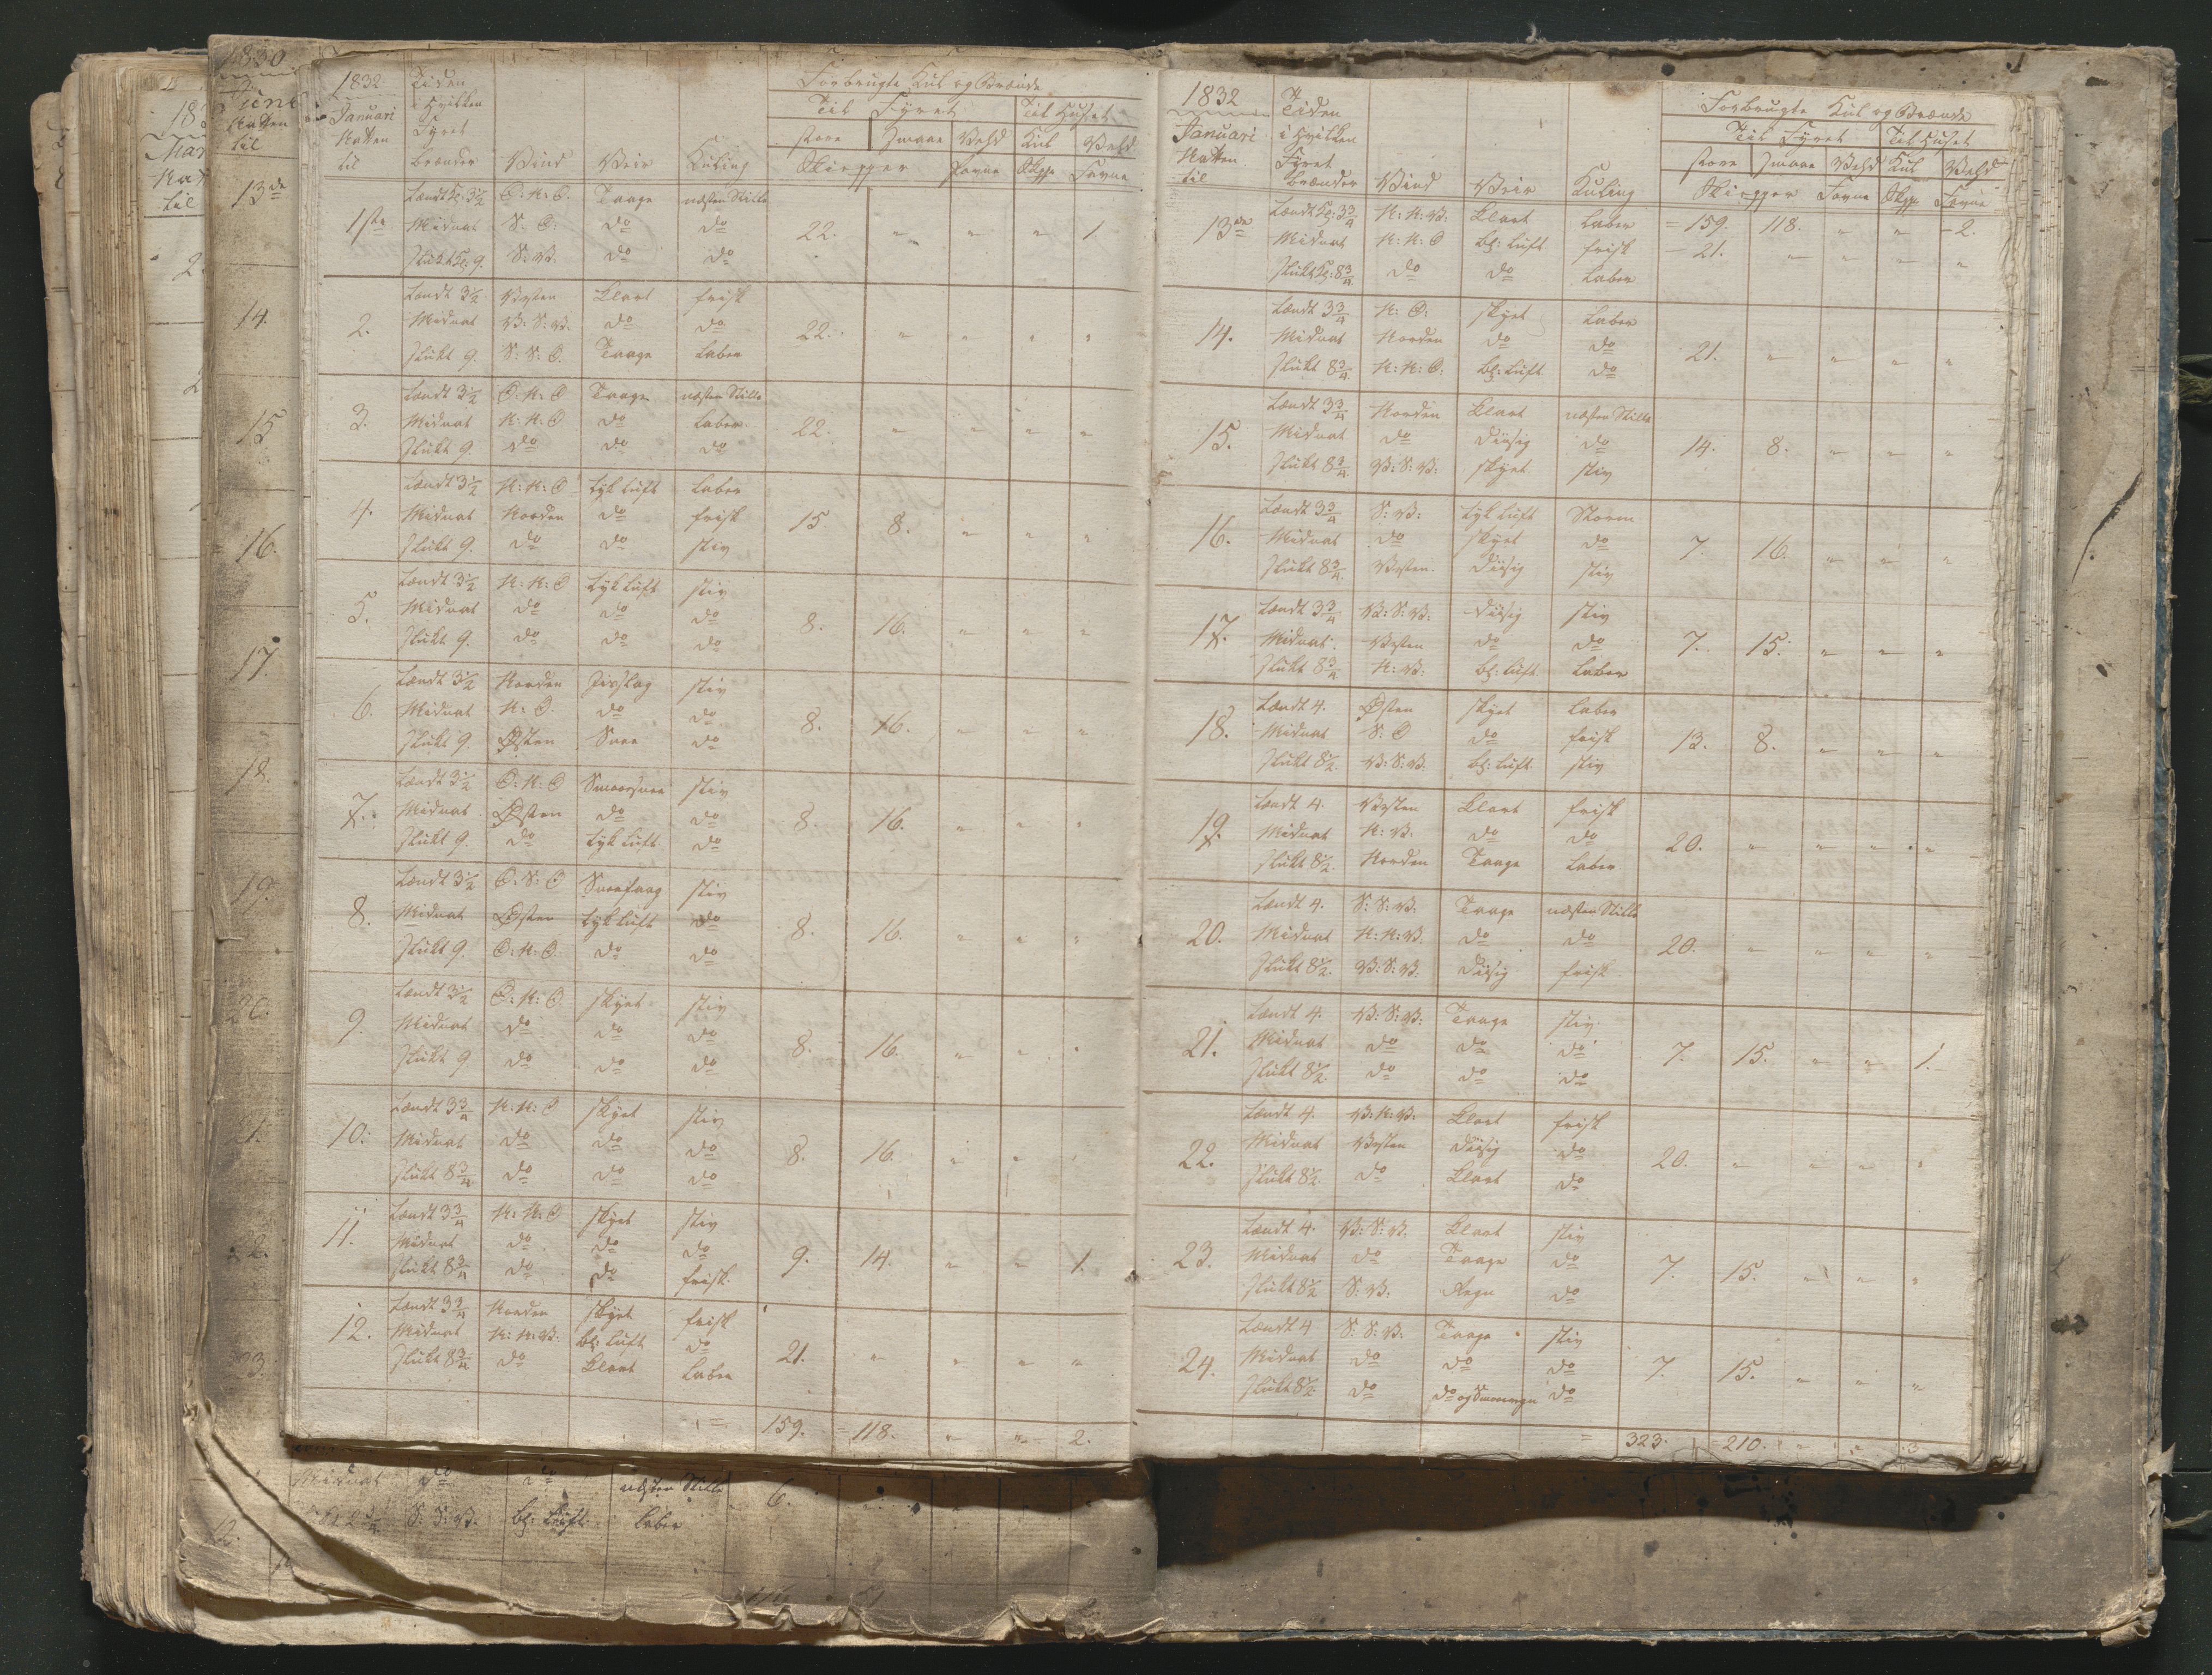 1832 Tiden Forbrugte Kul og Brænde
Januari i hvilken Til Fyret Til Huset
Natten Fyret store Smaae Veld Kul Veld
til brænder Vind Veir Kuling Skiepper Favne Skpp Favne
Tændt Kl: 3½ O: N: O. Taage næsten Stille
1ste Midnat S: O: do do 22. " " " 1.
Slukt Kl: 9. S: V. do do
Tændt 3½ Vesten Klart frisk
2. Midnat V: S: V. do do 22. " " " "
Slukt 9. S: S: O. Taage Laber
Tændt 3½ O: N: O Taage næsten Stille
3. Midnat N: N: O do Laber. 22. " " " "
Slukt 9. do do do
Tændt 3½ N: N: O tyk Luft Laber
4. Midnat Norden do frisk 15 8. " " "
Slukt 9. do do stiv
Tændt 3½ N: N: O tyk Luft stiv
5. Midnat do do do 8. 16. " " "
Slukt 9. do do do
Tændt 3½ Norden stiv
6. Midnat N: O. do do 8. 16. " " "
Slukt 9 Østen Snee do
Tændt 3½ O: N: O Smaasnee stiv
7. Midnat Østen do do 8. 16. " " "
Slukt 9. do tyk Luft do
Tændt 3½ O: S: O Sneefaag stiv
8. Midnat Østen tyk Luft do 8. 16. " " "
Slukt 9. O: N: O. do do
Tændt 3½ O: N: O. skyet stiv
9. Midnat do do do 8. 16. " " "
Slukt 9 do do do
Tændt 3¾ N: N: O skyet stiv
10. Midnat do do do 8. 16. " " "
Slukt 8¾ do do do
Tændt 3¾ N: N: O skyet stiv
11. Midnat do do do 9. 14. " " 1.
Slukt 8¾ do do frisk.
Tændt 3¾ Norden skyet frisk
12. Midnat N: N: V. bl: Luft do 21. " " " "
Slukt 8¾ do Klart Laber
= 159. = 118. " " 2.
1832 Tiden Forbrugte Kul og Brænde
Januari i hvilken Til Fyret Til Huset
Natten Fyret store Smaae Veld Kul Veld
til brænder Vind Veir Kuling Skiepper Favne Skpp Favne
Tændt Kl: 3¾ N: N: V. Klart Laber = 159. 118. " " = 2.
13de Midnat N: N: O bl: Luft frisk 21. " " " "
Slukt Kl: 8¾ do do Laber
Tændt 3¾ N: O: skyet Laber
14. Midnat Norden do do 21. " " " "
Slukt 8¾ N: N: O. bl: Luft do
Tændt 3¾ Norden Klart næsten Stille
15. Midnat do diisig do 14. 8. " " "
Slukt 8¾ V: S: V: skyet stiv
Tændt 3¾ S: V: tyk Luft Storm
16. Midnat do skyet do 7. 16. " " "
Slukt 8¾ Vesten. diisig stiv
Tændt 3¾ V: S: V. diisig stiv
17. Midnat. Vesten do do 7. 15. " " "
Slukt 8¾ N: V: bl: Luft. Laber
Tændt 4. Østen skyet Laber
18. Midnat S: O do frisk 13. 8. " " "
Slukt 8½. V: S: V. bl: Luft. stiv
Tændt 4. Vesten Klart frisk
19. Midnat N: V. do do 20. " " " "
Slukt 8½. Norden Taage Laber
Tændt 4. S: S: V. Taage næsten Stille
20. Midnat N: N: V. do do 20. " " " "
Slukt 8½. V: S: V. diisig frisk
Tændt 4. V: S: V: Taage stiv
21. Midnat do do do 7. 15. " " 1.
Slukt 8½. do do do
Tændt 4. V: N: V. Klart frisk
22. Midnat Vesten diisig do 20. " " " "
Slukt 8½. do Klart do
Tændt 4. V: S: V. Klart stiv
23. Midnat do Taage do 7. 15. " " "
Slukt 8½ S: V. Regn do
Tændt 4 S: S: V. Taage stiv
24. Midnat do do do 7. 15. " " "
Slukt 8½. do do og Smaaregn do
= 323. = 210. " " 3
1830
Juni
Natten
til
13de
14.
15
16.
17.
18.
19.
20.
21.
22.
23.
Midnat do do næsten Stille 6.
S: S: V. bl: Luft. Laber